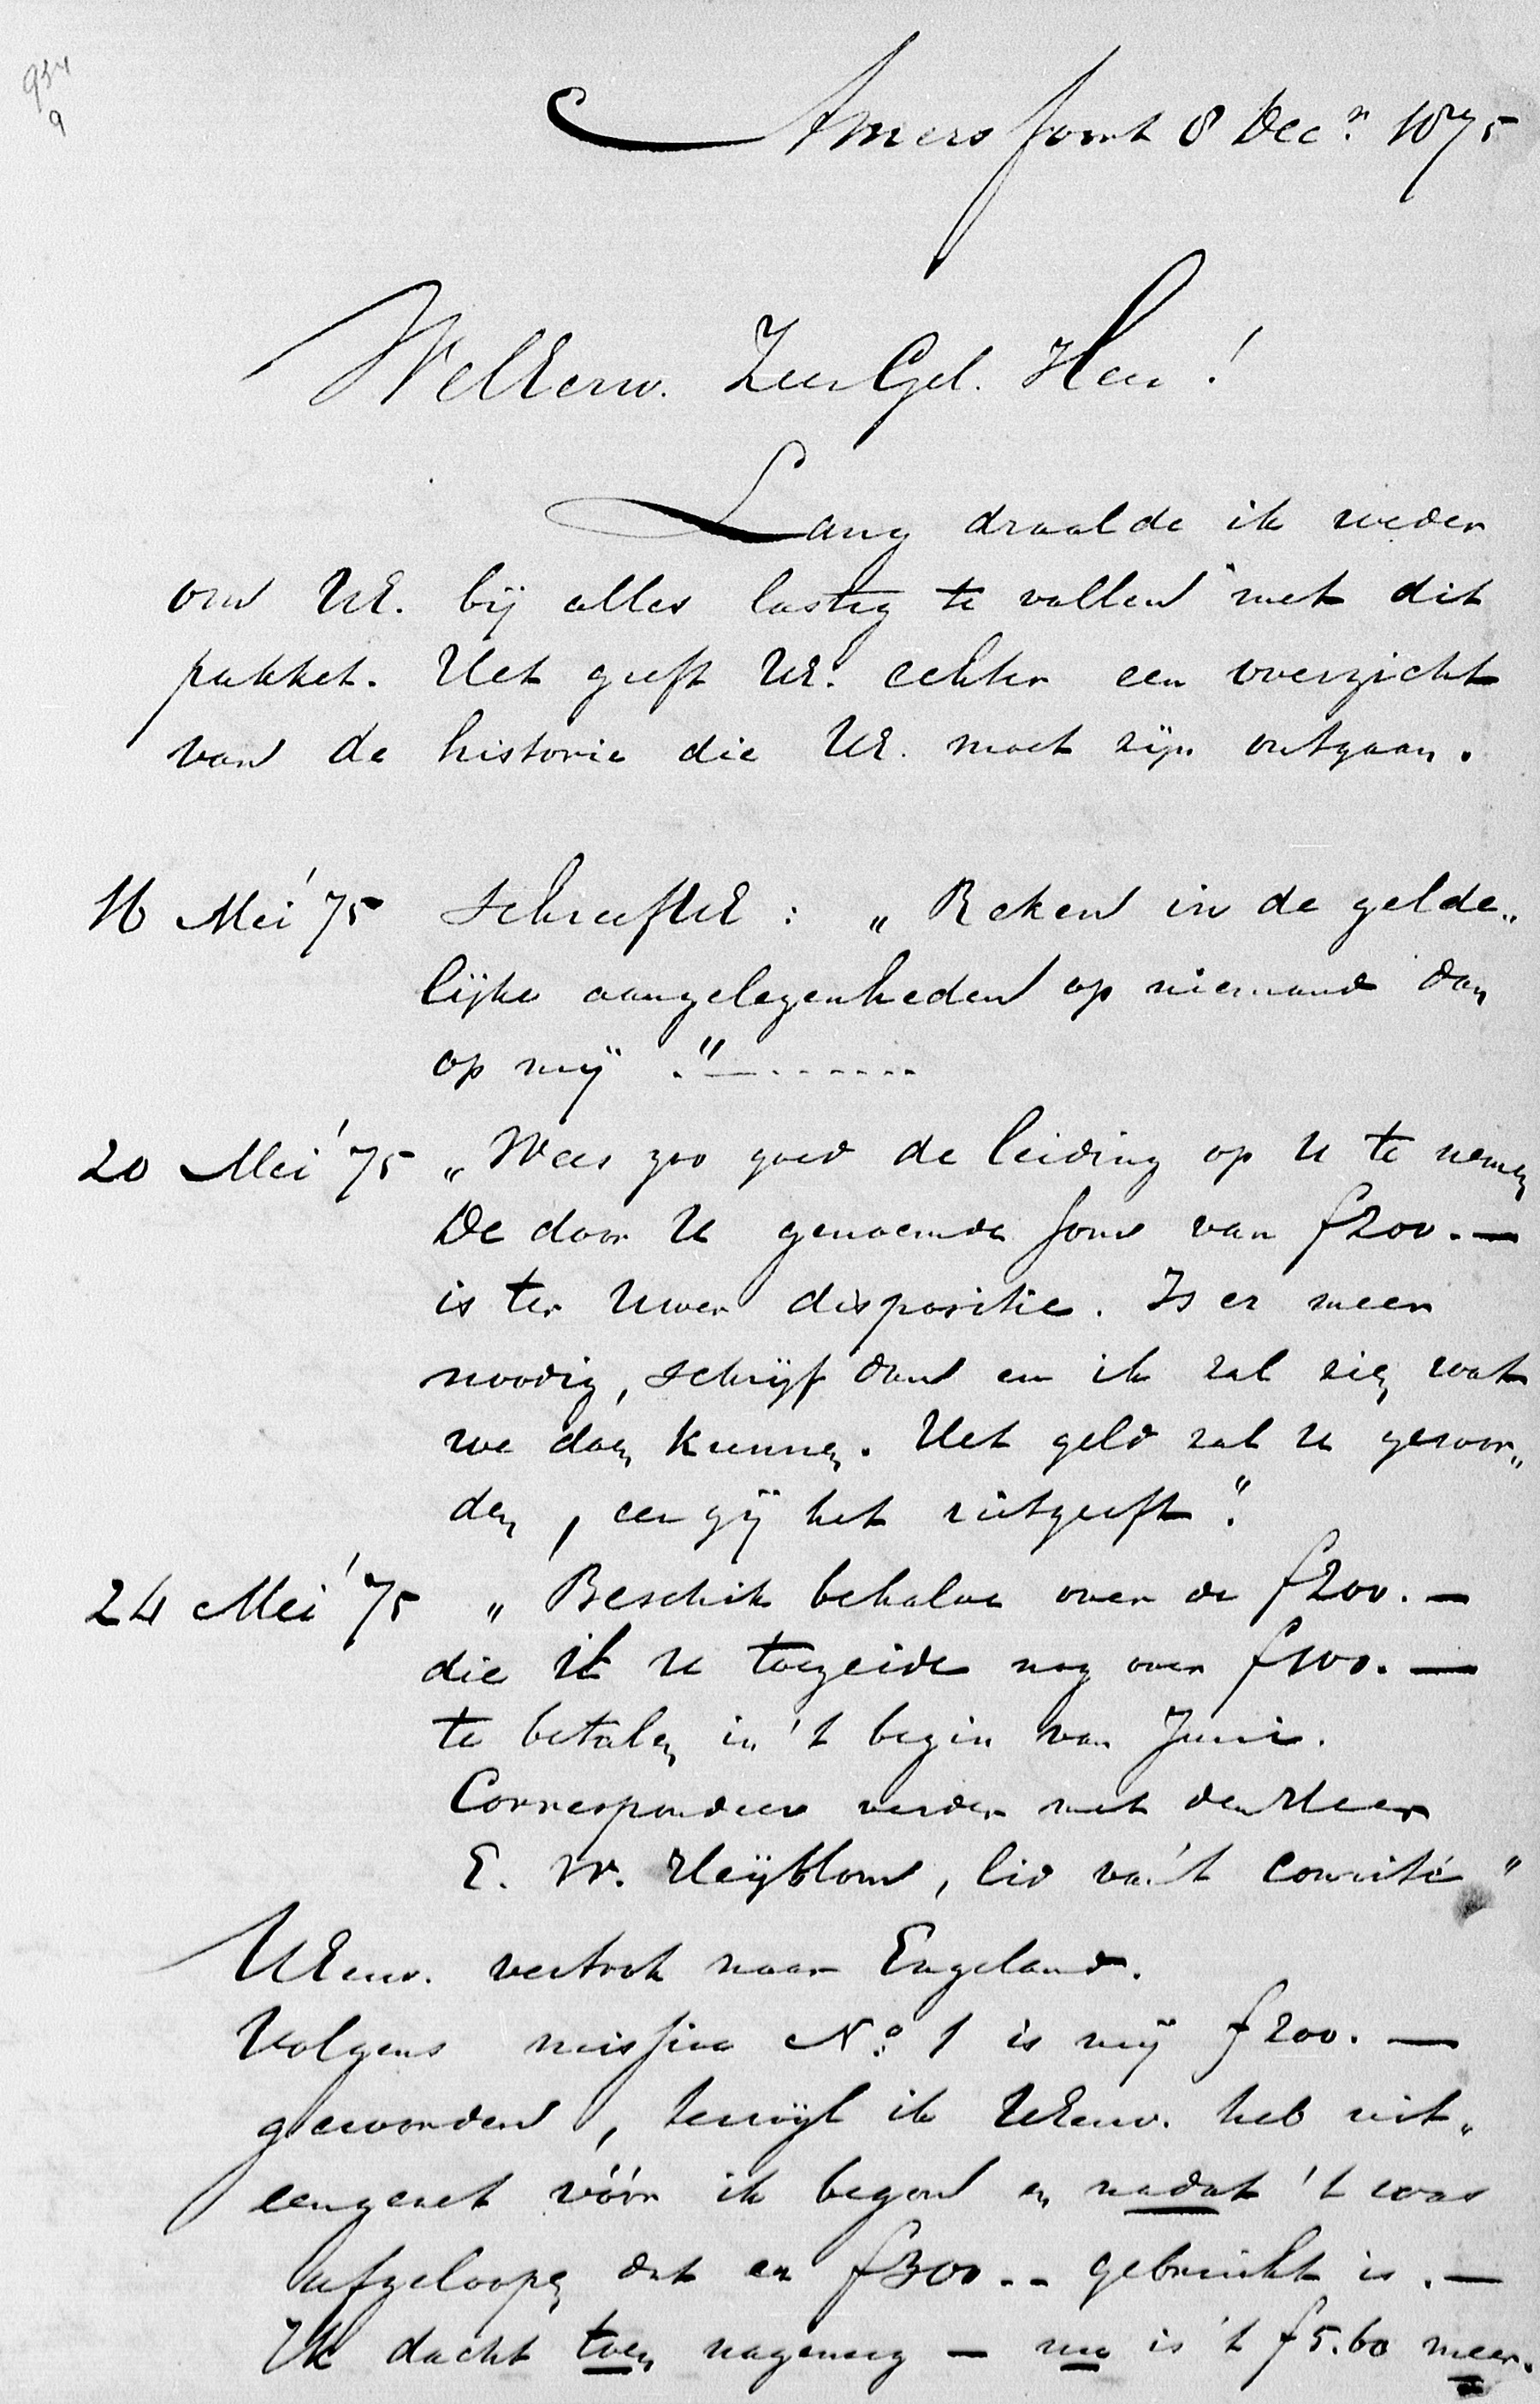 954
9
Amersfoort 8 Dec.r 1875
WelEerw. ZeerGel. Heer!
Lang draalde ik weder
om UE. bij alles lastig te vallen met dit
pakket. Het geeft UE. echter een overzicht
van de historie die UE. moet zijn ontgaan.
16 Mei '75 schreeft UE : „Reken in de gelde„
lijke aangelegenheden op niemand dan
op mij." — - - - - - -
20 Mei '75 „Wees zoo goed de leiding op U te nemen
De door U genoemde som van f200.—
is ter Uwer dispositie. Is er meer
noodig, schrijf dan en ik zal zien wat
we doen kunnen. Het geld zal U gewor„
den, eer gij het uitgeeft."
24 Mei '75 „Beschik behalve over de f200.—
die ik U toezeide nog over f100.—
te betalen in 't begin van Juni.
Correspondeer verder met den Heer
E. W. Heijblom, lid va.'t comité"
UEerw. vertrok naar Engeland.
Volgens missive No. 1 is mij f200.—
geworden, terwijl ik UEerw. heb uit„
eengezet vóór ik begon en nadat 't was
afgeloopen dat er f300.- gebruikt is.—
Ik dacht toen nagenoeg — nu is 't f5.60 meer.